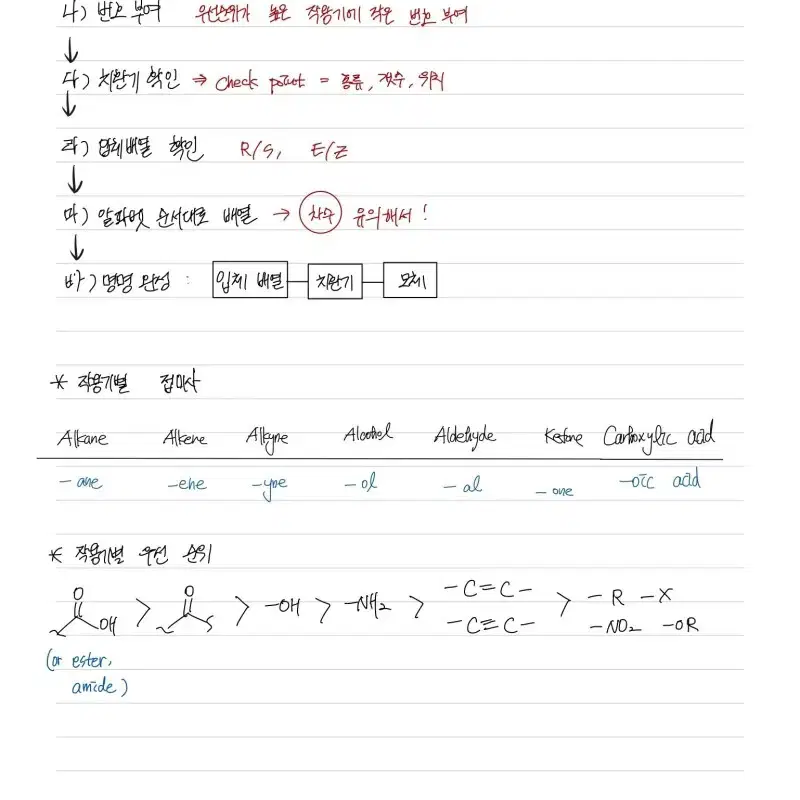 나) 번호 부여 우선순위가 높은 작용기에 작은 번호 부여
↓
다) 치환기 확인 ⇒ check point = 종류, 갯수, 위치
↓
라) 입체배열 확인 R/S, E/Z
↓
마) 알파벳 순서대로 배열 → 차수 유의해서!
↓
바) 명명 완성 : 입체 배열 — 치환기 — 모체
* 작용기별 접미사
Alkane Alkene Alkyne Alcohol Aldehyde Ketone Carboxylic acid
-ane -ene -yne -ol -al -one -oic acid
* 작용기별 우선 순위
O O -C=C- -R -X
OH > > -OH > -NH2 > -C≡C- > -NO2 -OR
(or ester,
amide)